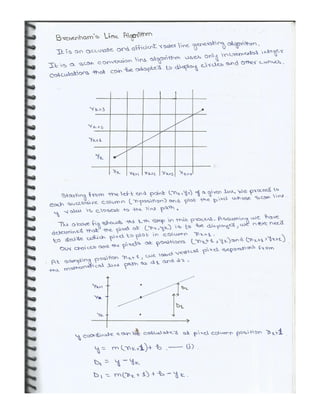 Bresenham's Line Algorithm
It is an accurate and efficient raster line generating algorithm.
It is a scan conversion line algorithm uses only incremental integer
calculations that can be adapted to display circles and other curves.
yk+3
yk+2
yk
xk xk+1 xk+2 xk+3 xk+4
Starting from the left end point (x0, y0) of a given line, we proceed to
each successive column (x position) and plot the pixel whose scan line
y value is closest to the line path.
The above fig shows the kth step in this process. Assuming we have
determined that the pixel at (xk, yk) is to be displayed, we next need
to decide which pixel to plot in column xk+1.
Our choices are the pixels at positions (xk+1, yk) and (xk+1, yk+1)
At sampling position xk+1, we label vertical pixel separations from
the mathematical line path as d1 and d2.
yk+1
yk
D2
D1
y coordinate can be calculated at pixel column position xk+1
y = m(xk+1) + b —— (1)
D1 = y - yk
D1 = m(xk+1) + b - yk.